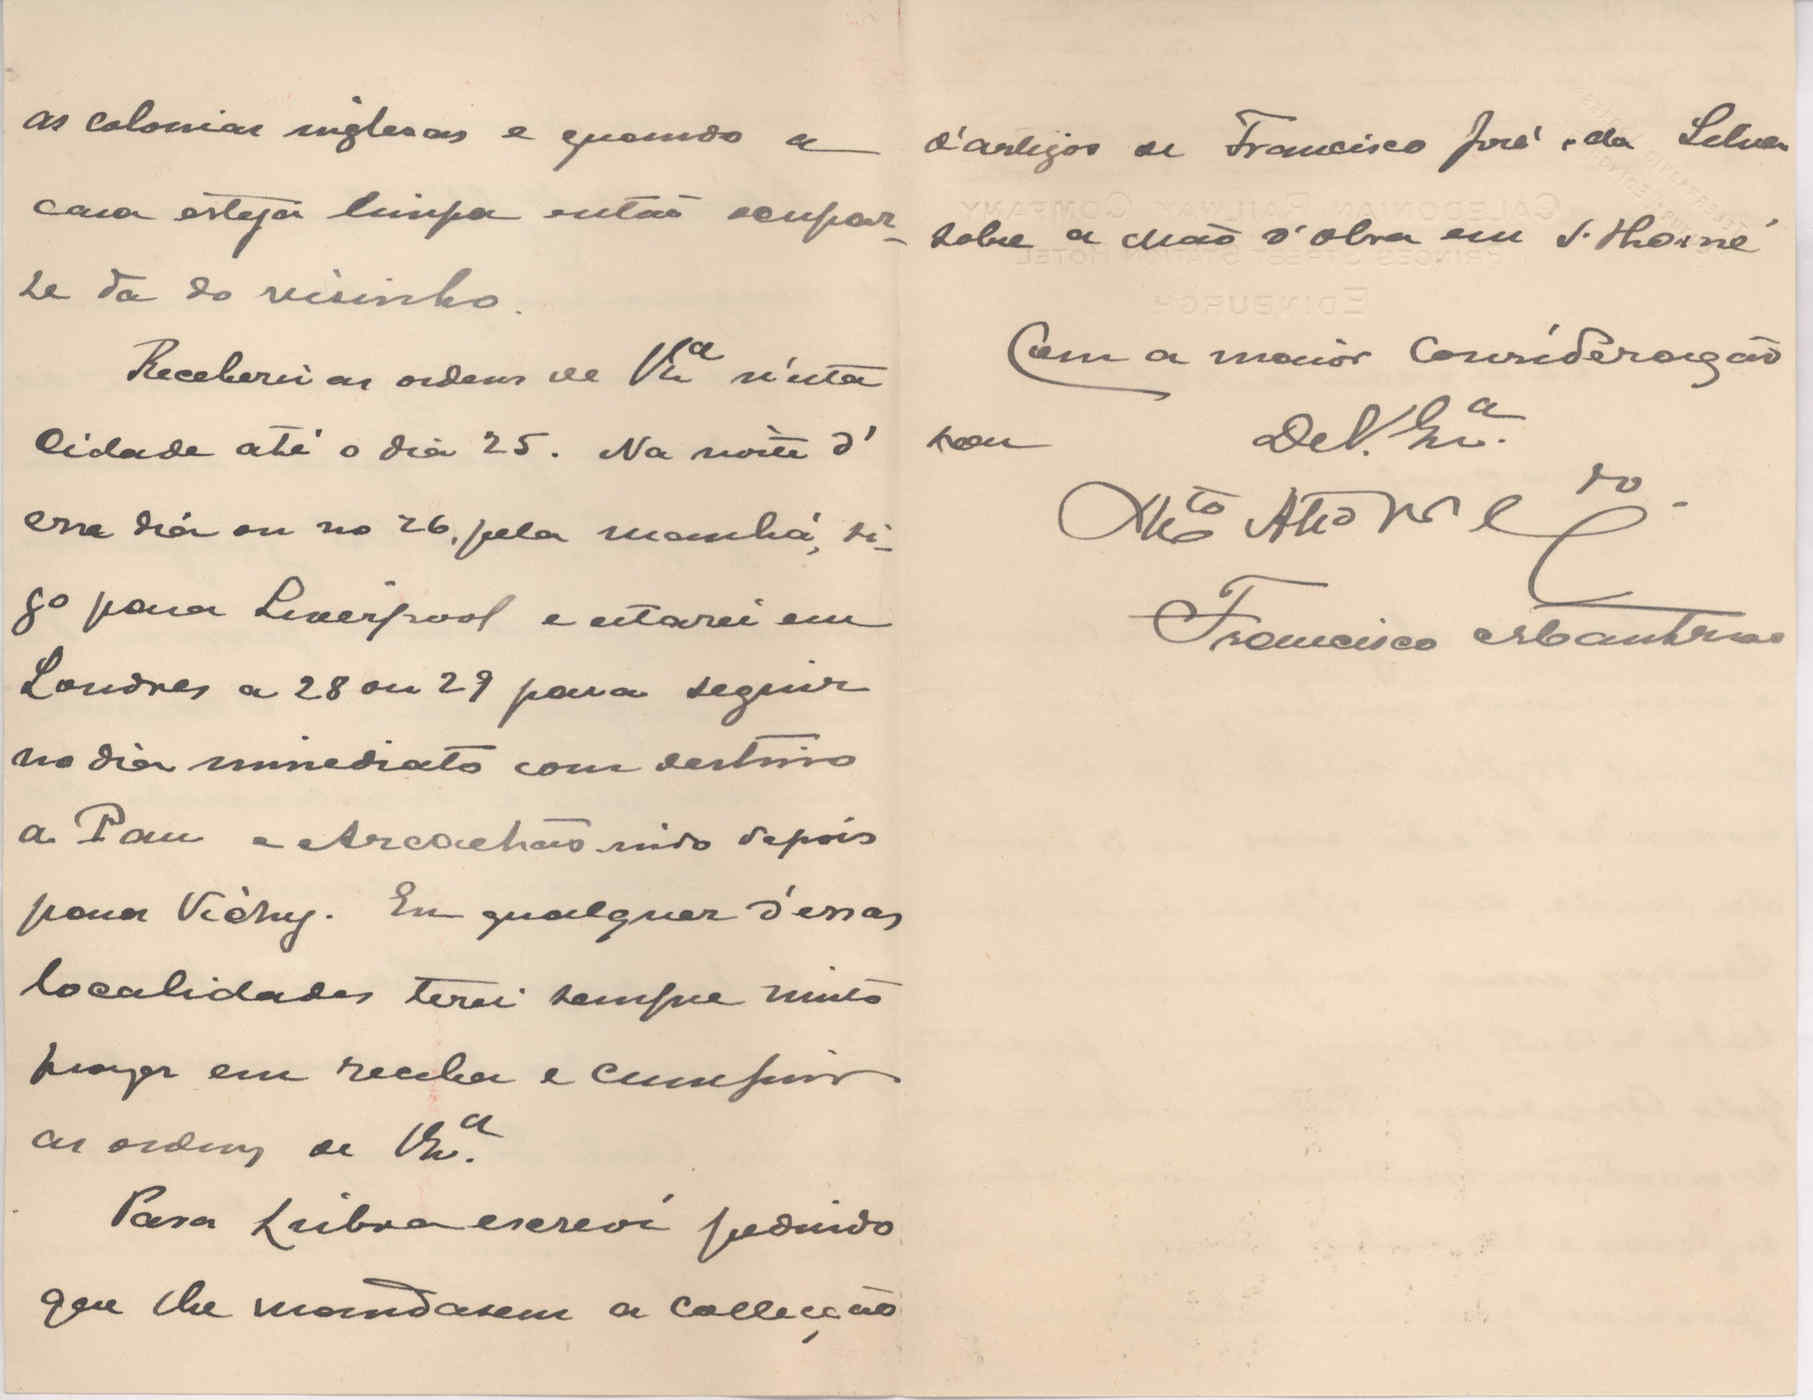 as colonias inglesas e quando a
casa esteja limpa então occupar-
se da do visinho.
Receberei as ordens de V.Exª n'esta
cidade até o dia 25. Na noite d'
esse dia ou no 26, pela manhã, si-
go para Liverpool e estarei em
Londres a 28 ou 29 para seguir
no dia immediato com destino
a Pau e Arcachão indo depois
para Vichy. Em qualquer d'essas
localidades terei sempre muito
prazer em receber e cumprir
as ordens de V.Exª.
Para Lisboa escreví pedindo
que lhe mandassem a collecção
d'artigos de Francisco José da Silva
sobre a mão d'obra em S. Thomé
Com a maior consideração
sou De V. Exª.
Attº Vor e
Francisco Mantero
CALEDONIAN RAILWAY COMPANY
PRINCES STREET STATION HOTEL
EDINBURGH